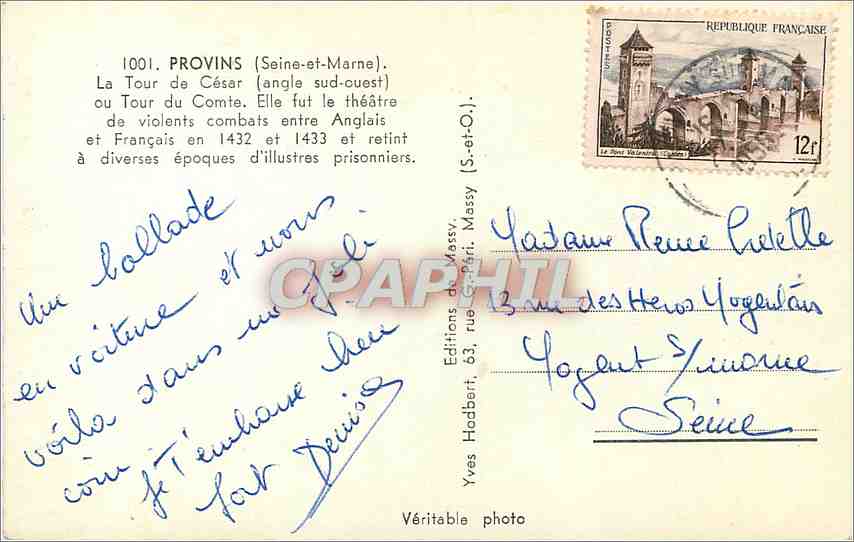 1001. PROVINS (Seine-et-Marne).
La Tour de César (angle sud-ouest)
ou Tour du Comte. Elle fut le théâtre
de violents combats entre Anglais
et Français en 1432 et 1433 et retint
à diverses époques d'illustres prisonniers.
Une ballade
en voiture et nous
voila dans un joli
coin
Je t'embrasse bien
fort Denise
Editions de Massy.
Yves Hodbert, 63, rue G.-Péri. Massy (S.-et-O.).
REPUBLIQUE FRANÇAISE
POSTES
Le Pont Valentré (Cahors)
12f
Madame Renée
13 rue des Heros Nogentais
Nogent s/marne
Seine
Véritable photo
CPAPHIL